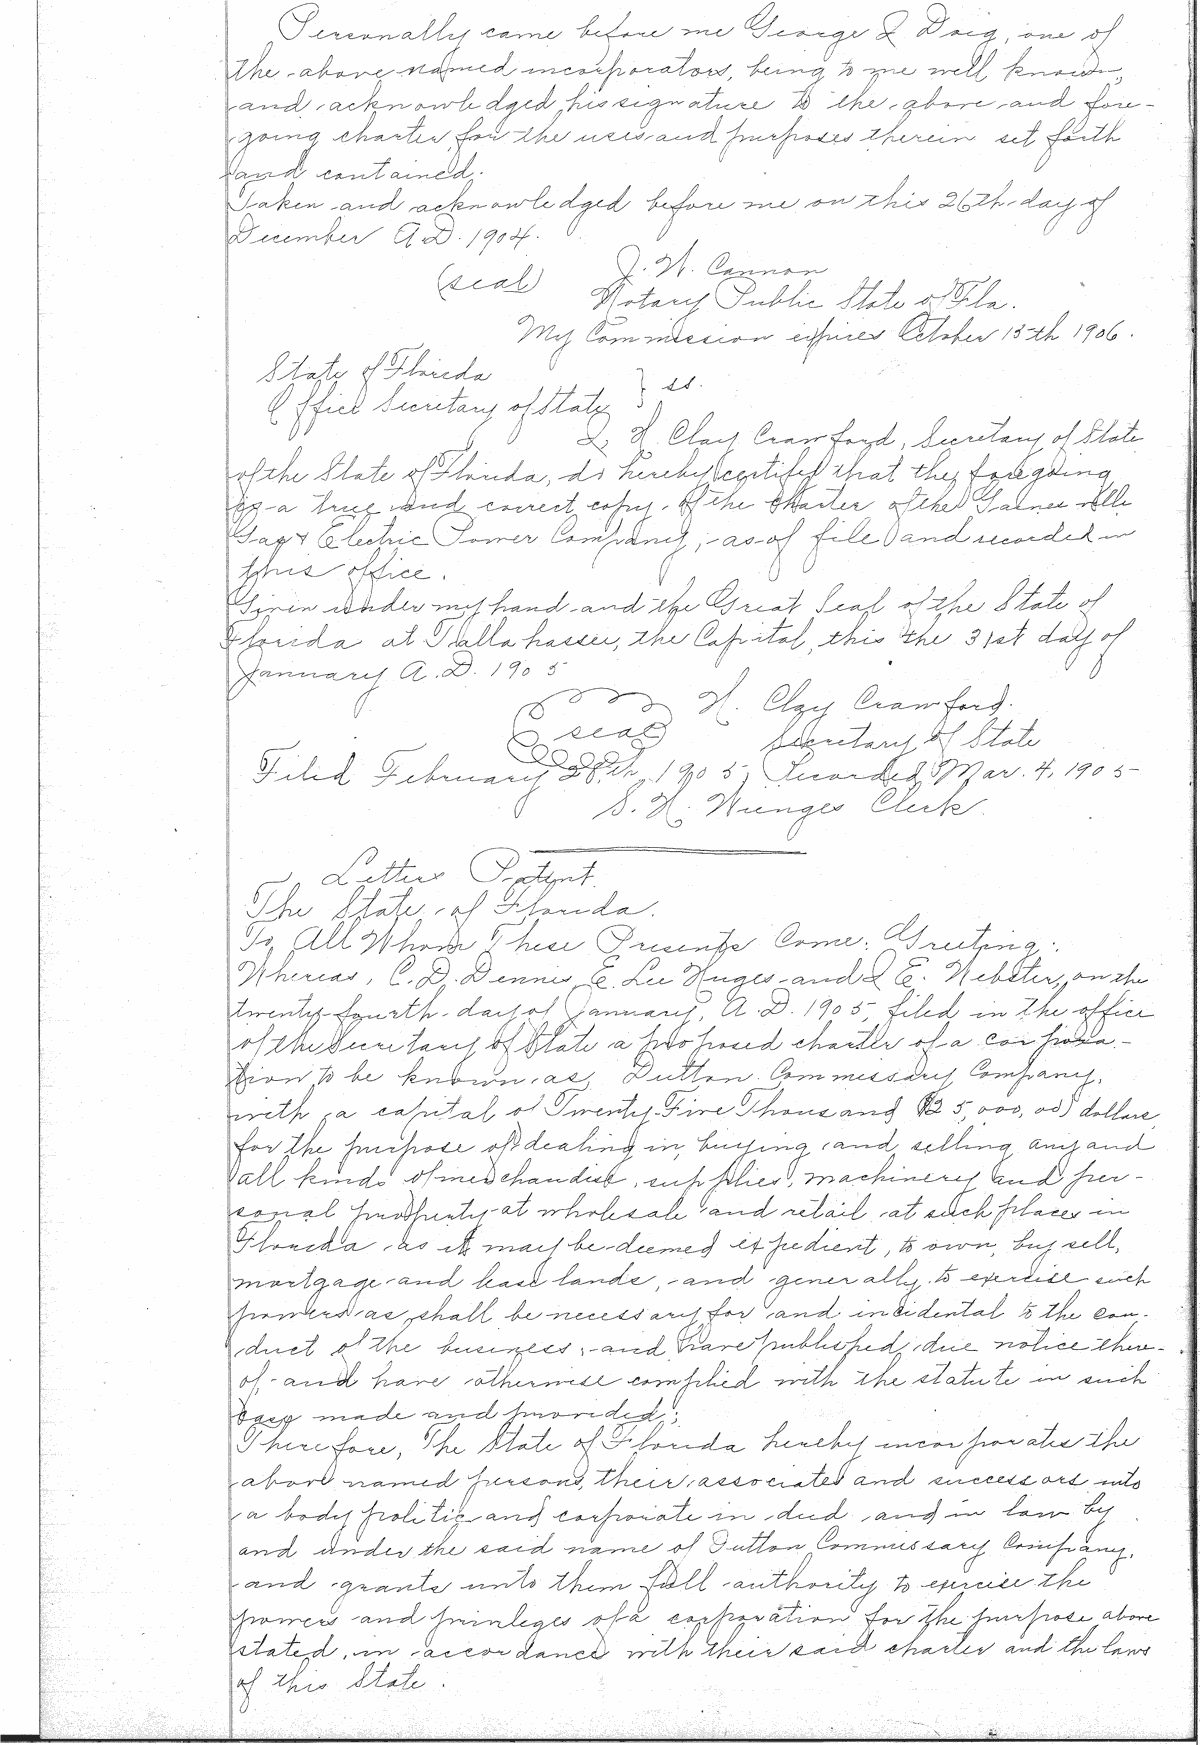 Personally came before me George J Doig, one of
the above named incorporators, being to me well known,
and acknowledged his signature to the above and fore-
going charter for the uses and purposes therein set forth
and contained.
Taken and acknowledged before me on this 26th day of
December A.D. 1904.
(seal) J. W. Cannon
Notary Public State of Fla.
My Commission expires October 15th 1906.
State of Florida
Office Secretary of State } ss.
I, H. Clay Crawford, Secretary of State
of the State of Florida, do hereby certify that the foregoing
is a true and correct copy of the charter of the Gainesville
Gas & Electric Power Company, as of file and recorded in
this office.
Given under my hand and the Great Seal of the State of
Florida at Tallahassee, the Capital, this the 31st day of
January A.D. 1905
seal H. Clay Crawford.
Secretary of State
Filed February 28th, 1905, Recorded Mar. 4, 1905
S. H. Wienges Clerk.
Letters Patent.
The State of Florida.
To All Whom These Presents Come: Greeting:
Whereas, C. D. Dennis, E. Lee Huges and J E. Webster, on the
twenty-fourth day of January, A.D. 1905, filed in the office
of the Secretary of State a proposed charter of a corpora-
tion to be known as, Dutton Commissary Company,
with a capital of Twenty-Five Thousand ($25,000,00) dollars,
for the purpose of dealing in, buying and selling any and
all kinds of merchandise, supplies, machinery and per-
sonal property at wholesale and retail at such places in
Florida as it may be deemed expedient, to own, buy sell,
mortgage and lease lands, and generally to exercise such
powers as shall be necessary for and incidental to the con-
duct of the business, and have published due notice there-
of, and have otherwise complied with the statute in such
case made and provided;
Therefore, The State of Florida hereby incorporates the
above named persons, their associates and successors into
a body politic and corporate in deed and in law by
and under the said name of Dutton Commissary Company,
and grants unto them full authority to exercise the
powers and privileges of a corporation for the purpose above
stated, in accordance with their said charter and the laws
of this State.